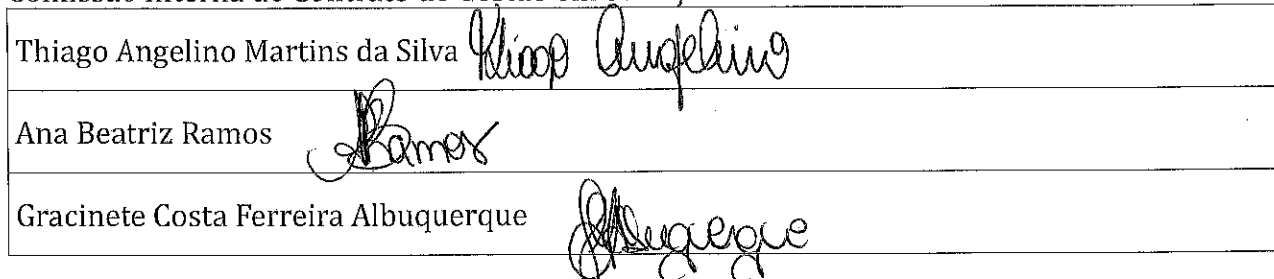 Thiago Angelino Martins da Silva Thiago Angelino
Ana Beatriz Ramos ABRamos
Gracinete Costa Ferreira Albuquerque Albuquerque